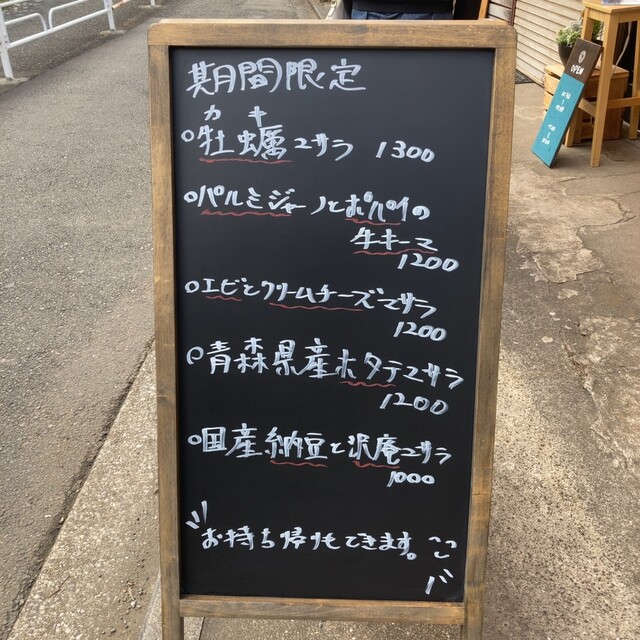 期間限定
カキ
牡蠣マサラ 1300
パルミジャーノとポパイの
牛キーマ
1200
エビとクリームチーズマサラ
1200
青森県産ホタテマサラ
1200
国産納豆と沢庵マサラ
1000
お持ち帰りもできます。
OPEN